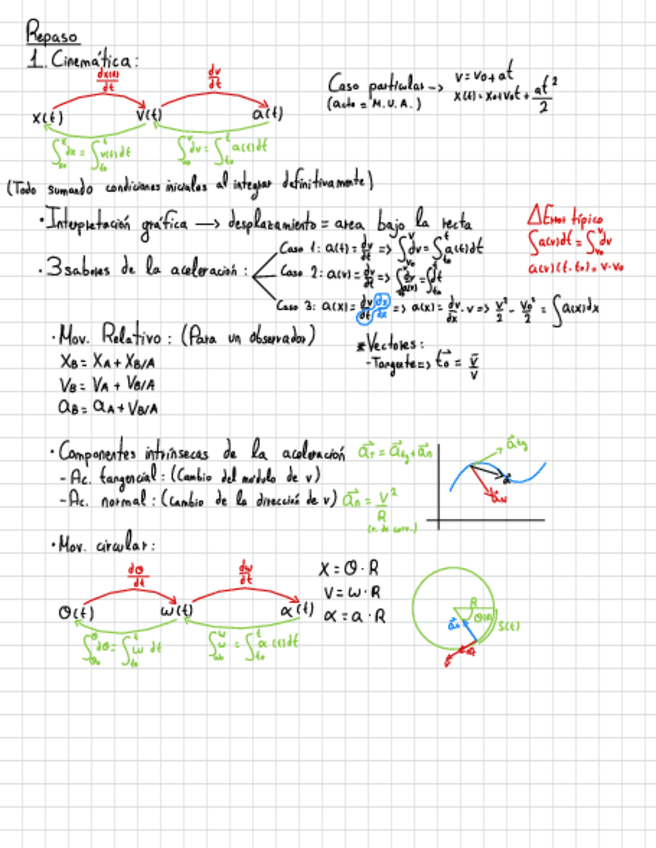 Repaso
1. Cinemática:
dx(t)/dt
dv/dt
x(t) v(t) a(t)
∫dx = ∫v(t)dt
∫dv = ∫a(t)dt
Caso particular -> v = v0 + at
(a cte = M.U.A.) x(t) = x0 + v0t + at²/2
(Todo sumando condiciones iniciales al integrar definitivamente)
· Interpretación gráfica -> desplazamiento = area bajo la recta
△ Error típico
∫a(v)dt = ∫dv
a(v)(t-t0) = v-v0
· 3 sabores de la aceleración:
Caso 1: a(t) = dv/dt => ∫dv = ∫a(t)dt
Caso 2: a(v) = dv/dt => ∫dv/a(v) = ∫dt
Caso 3: a(x) = dv/dt dx/dx => a(x) = dv/dx · v => v²/2 - v0²/2 = ∫a(x)dx
· Mov. Relativo: (Para un observador)
XB = XA + XB/A
VB = VA + VB/A
aB = aA + VB/A
* Vectores:
- Tangente =>
· Componentes intrínsecas de la aceleración
- Ac. tangencial: (Cambio del modulo de v)
- Ac. normal: (Cambio de la dirección de v) an = v²/R
(r. de curv.)
· Mov. circular:
dθ/dt
dw/dt
θ(t) w(t) α(t)
∫dθ = ∫w dt
X = θ · R
V = w · R
α = a · R
R
θ(t)
S(t)